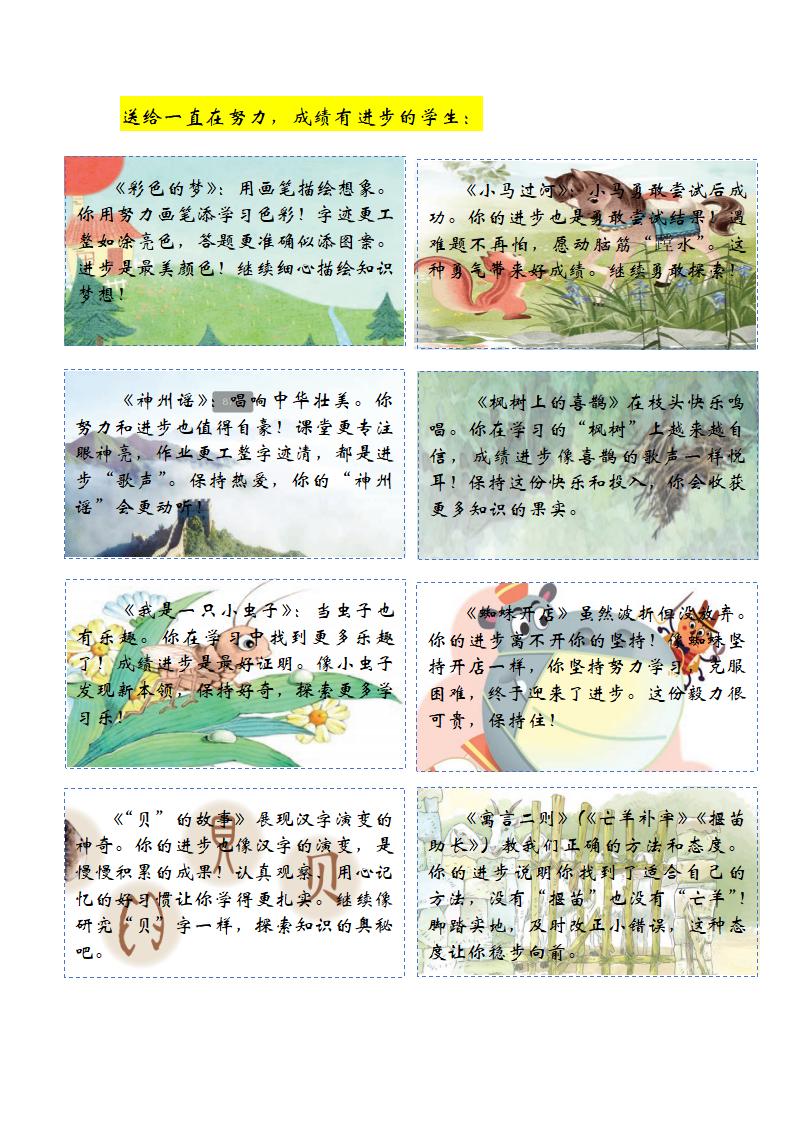 送给一直在努力，成绩有进步的学生：
《彩色的梦》：用画笔描绘想象。
你用努力画笔添学习色彩！字迹更工
整如涂亮色，答题更准确似添图案。
进步是最美颜色！继续细心描绘知识
梦想！
《小马过河》：小马勇敢尝试后成
功。你的进步也是勇敢尝试结果！遇
难题不再怕，愿动脑筋“蹚水”。这
种勇气带来好成绩。继续勇敢探索！
《神州谣》：唱响中华壮美。你
努力和进步也值得自豪！课堂更专注
眼神亮，作业更工整字迹清，都是进
步“歌声”。保持热爱，你的“神州
谣”会更动听！
《枫树上的喜鹊》在枝头快乐鸣
唱。你在学习的“枫树”上越来越自
信，成绩进步像喜鹊的歌声一样悦
耳！保持这份快乐和投入，你会收获
更多知识的果实。
《我是一只小虫子》：当虫子也
有乐趣。你在学习中找到更多乐趣
了！成绩进步是最好证明。像小虫子
发现新本领，保持好奇，探索更多学
习乐！
《蜘蛛开店》虽然波折但没放弃。
你的进步离不开你的坚持！像蜘蛛坚
持开店一样，你坚持努力学习，克服
困难，终于迎来了进步。这份毅力很
可贵，保持住！
《“贝”的故事》展现汉字演变的
神奇。你的进步也像汉字的演变，是
慢慢积累的成果！认真观察、用心记
忆的好习惯让你学得更扎实。继续像
研究“贝”字一样，探索知识的奥秘
吧。
《寓言二则》（《亡羊补牢》《揠苗
助长》）教我们正确的方法和态度。
你的进步说明你找到了适合自己的
方法，没有“揠苗”也没有“亡羊”！
脚踏实地，及时改正小错误，这种态
度让你稳步向前。
贝